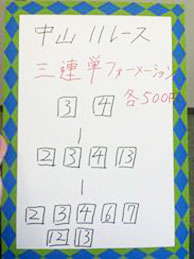 中山 11レース
三連単フォーメーション
各500円
3 4
2 3 4 13
2 3 4 6 7
12 13